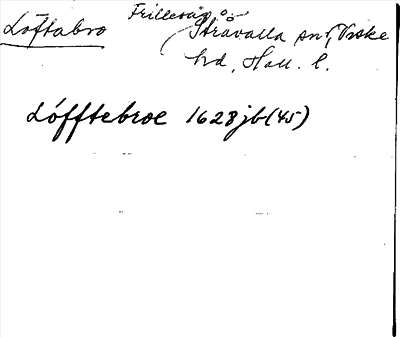 Löftabro Frillesås o.
Stråvalla snr, Viske
hd, Hall. l.
Löfftebroe 1628 jb (45)